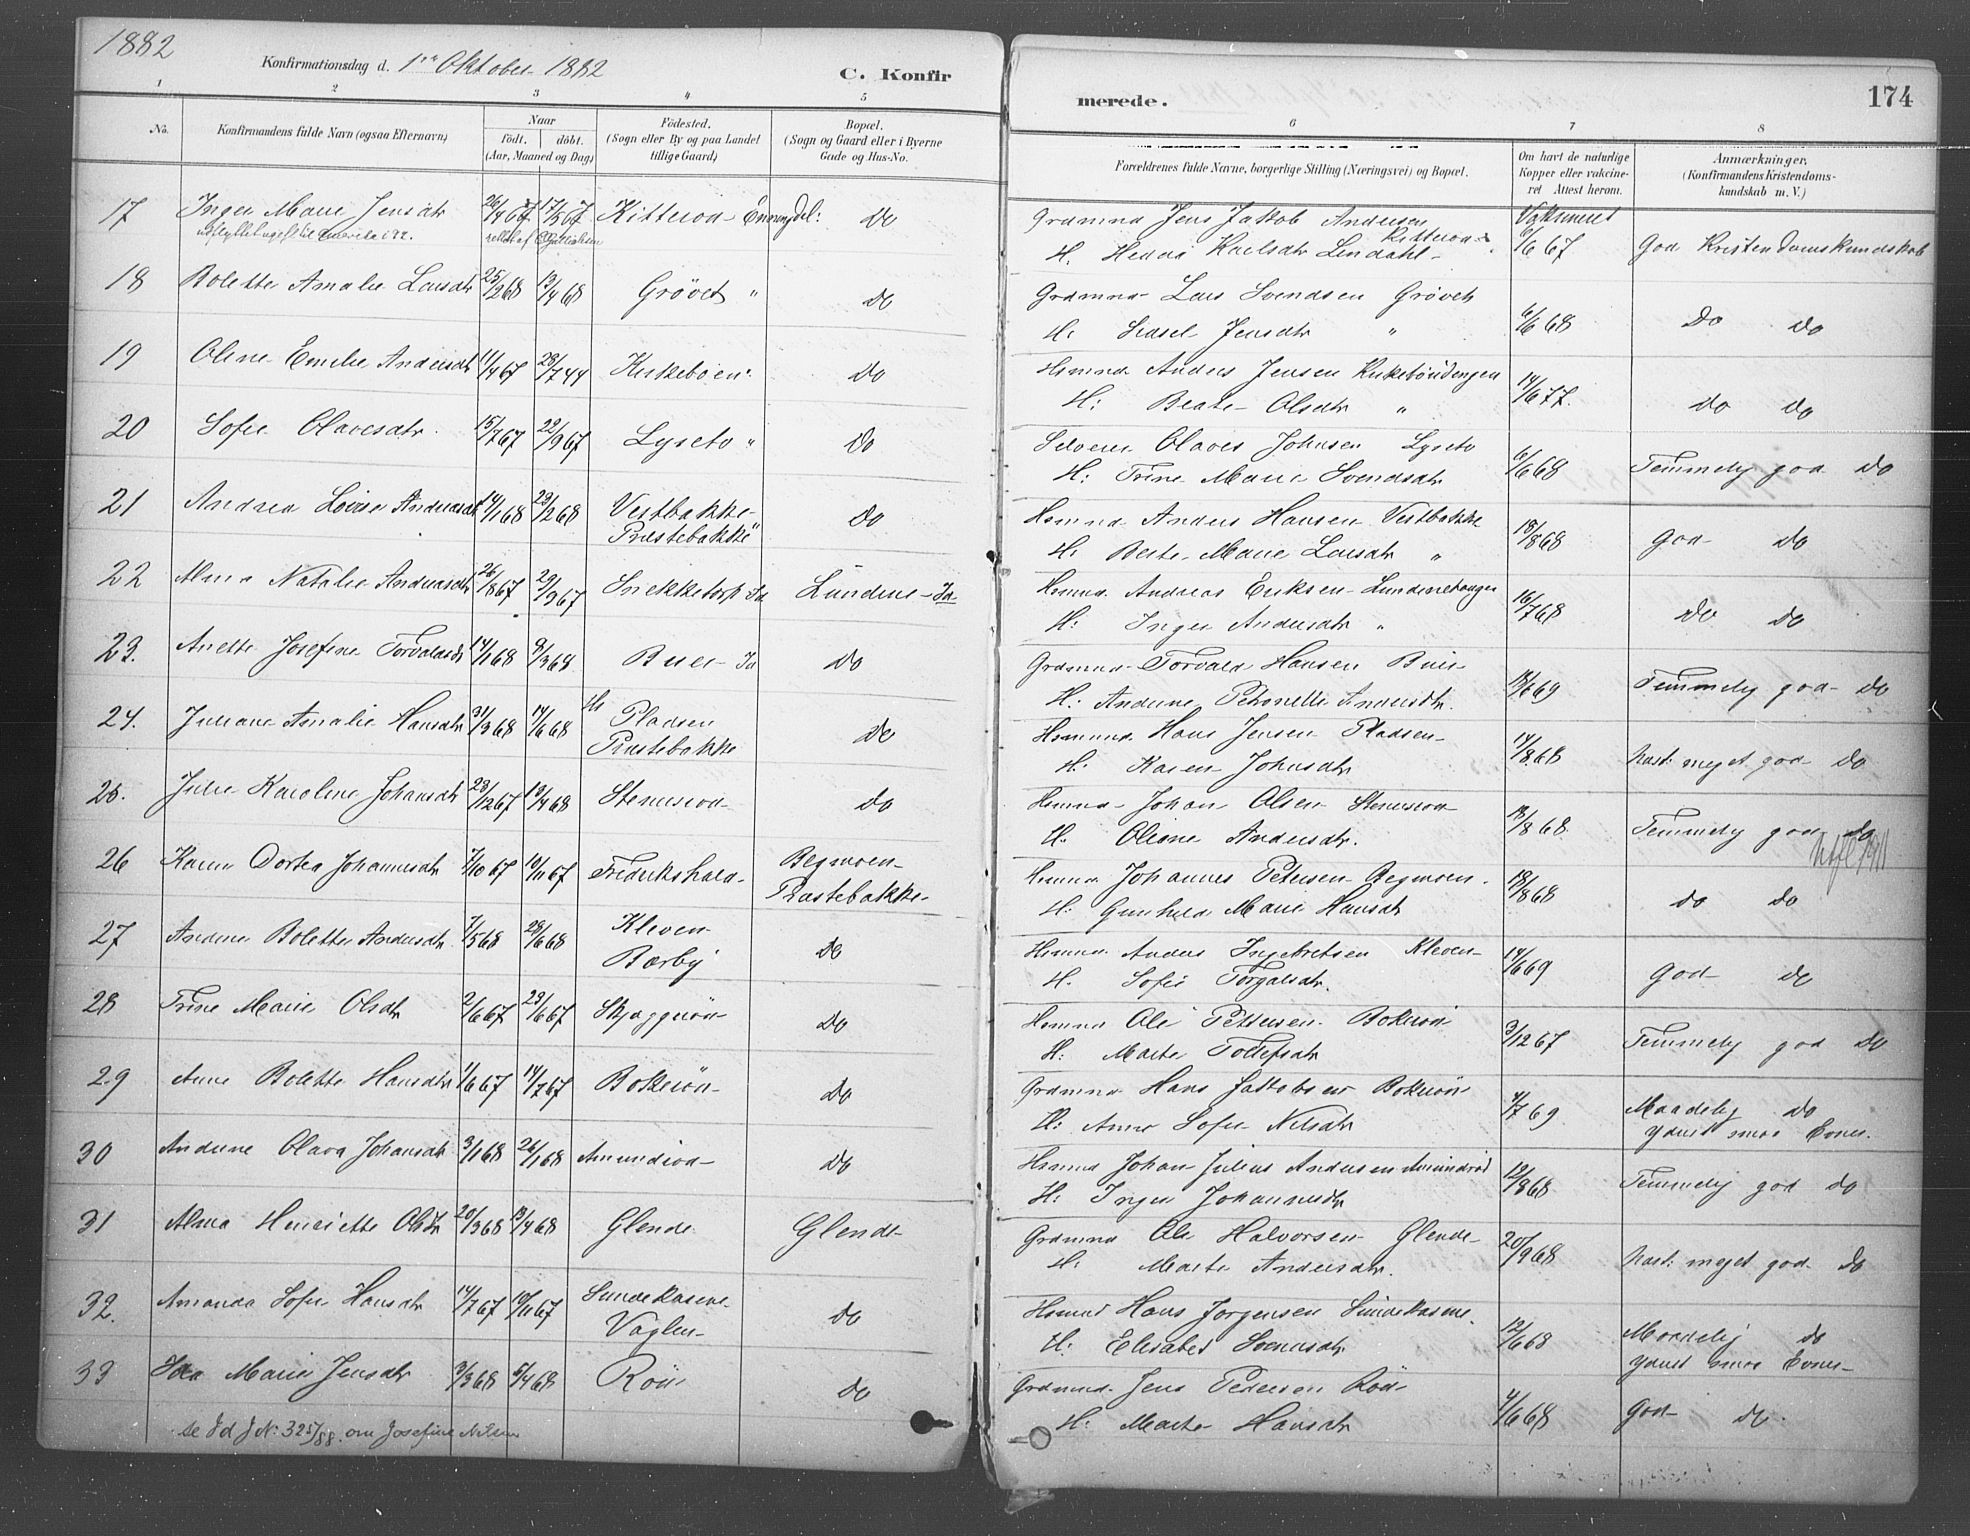 1882
Konfirmationsdag d. 1ste Oktober 1882
C. Konfir
merede.
174
1 2 3 4 5 6 7 8
No.
Konfirmandens fulde Navn (ogsaa Efternavn)
Naar
födt. döbt.
(Aar, Maaned og Dag)
Födested.
(Sogn eller By og paa Landet
tillige Gaard)
Bopæl.
(Sogn og Gaard eller i Byerne
Gade og Hus-No.
Forældrenes fulde Navne, borgerlige Stilling (Næringsvei) og Bopæl.
Om havt de naturlige
Kopper eller vakcine-
ret Attest herom.
Anmærkninger.
(Konfirmandens Kristendoms-
kundskab m. V.)
17 Inger Marie Jensdtr 26/4 67 17/5 67 Kitteröd Enningdel: Do Grdmnd Jens Jakob Andersen Vaksineret
H. Hedda Karlsdtr Lindahl 6/6 67 God Kristendomskundskab
18 Bolette Amalie Larsdtr 25/2 68 13/4 68 Grövet " Do Grdmnd Lars Svendsen Grövet
H: Sidsel Jensdtr " 6/6 68 Do Do
19 Oline Emilie Andersdtr 11/4 67 28/7 44 Kirkeböen Do Hsmnd. Anders Jensen
H: Beate Olsdtr " 14/6 77. Do Do
20 Sofie Olavesdtr. 15/7 67 22/9 67 Lyseto " Do Selveier Olaves Johnsen Lyseto
H: Trine Marie Svendsdtr 6/6 68 Temmelig god Do
21 Andrea Lovise Andersdtr 14/1 68 23/2 68 Vestbakke Do Hsmnd. Anders Hansen Vestbakke
Præstebakke" H: Berte Marie Larsdtr " 18/8 68 God Do
22 Alma Natalie Andreasdtr 26/8 67 29/9 67 Snekketorp Id Lundene - Id Hsmnd. Andreas Eriksen
H: Inger Andersdtr " 16/7 68 Do Do
23. Anette Josefine Torvaldsdtr 14/1 68 8/3 68 Buer Id Do Grdmnd Torvald Hansen Buer
H: Andrine Petronelle Andersdtr. 18/6 69 Temmelig god Do
24. Juliane Amalie Hansdtr 31/3 68 14/6 68 Pladsen Do Hsmnd. Hans Jensen Pladsen
Præstebakke H: Karen Johnsdtr 14/8 68 Næst: meget god Do
25. Julie Karoline Johansdtr 23/12 67 13/4 68 Stenseröd Do Hsmnd Johan Olsen Stenseröd
H. Oleane Andersdtr. 18/8 68 Temmelig god Do
26 Karen Dortea Johannesdtr 7/10 67 10/11 67 Fredrikshald Begmoen Hsmnd Johannes Petersen Begmoen.
Præstebakke H: Gunhild Marie Hansdtr 18/8 68 Do Do
27 Andrine Bolette Andersdtr 7/5 68 28/6 68 Kleven Do Hsmnd Anders Ingebretsen Kleven
Berby H. Sofie Torgalsdtr. 14/6 69 God Do
28 Trine Marie Olsdtr 2/6 67 23/6 67 Skjaggeröd Do Hsmnd Ole Pettersen Bokeröd
H: Marte Tollefsdtr 3/12 67 Temmelig god Do
29 Anne Bolette Hansdtr 1/6 67 14/7 67 Bokeröd Do Grdmnd Hans Jakobsen Bokeröd
H: Anne Sofie Nilsdtr 4/7 69 Maadelig Do
yderst smaa Evner.
30 Andrine Olava Johansdtr 3/1 68 26/1 68 Amundröd Do Hsmnd Johan Julius Andersen Amundröd
H: Inger Johannesdtr 12/8 68 Temmelig god Do
31 Alma Henriette Olsdtr 20/3 68 13/4 68 Glende Glende Grdmnd Ole Halvorsen Glende
H: Marte Andersdtr. 20/9 68 Næst: meget god Do
32. Amanda Sofie Hansdtr 14/7 67 10/11 67 Sundekasene Do Hsmnd Hans Jorgensen Sundekasene.
Vaglen H: Elisabet Svendsdtr 12/6 68 Maadelig Do
yderst smaa Evner
33 Ida Marie Jensdtr 3/3 68 5/4 68 Röd Do Grdmnd. Jens Pedersen Röd
H: Marte Hansdtr 4/6 68 God Do.
se Id J N: 325/88. om Josefine Nilsen